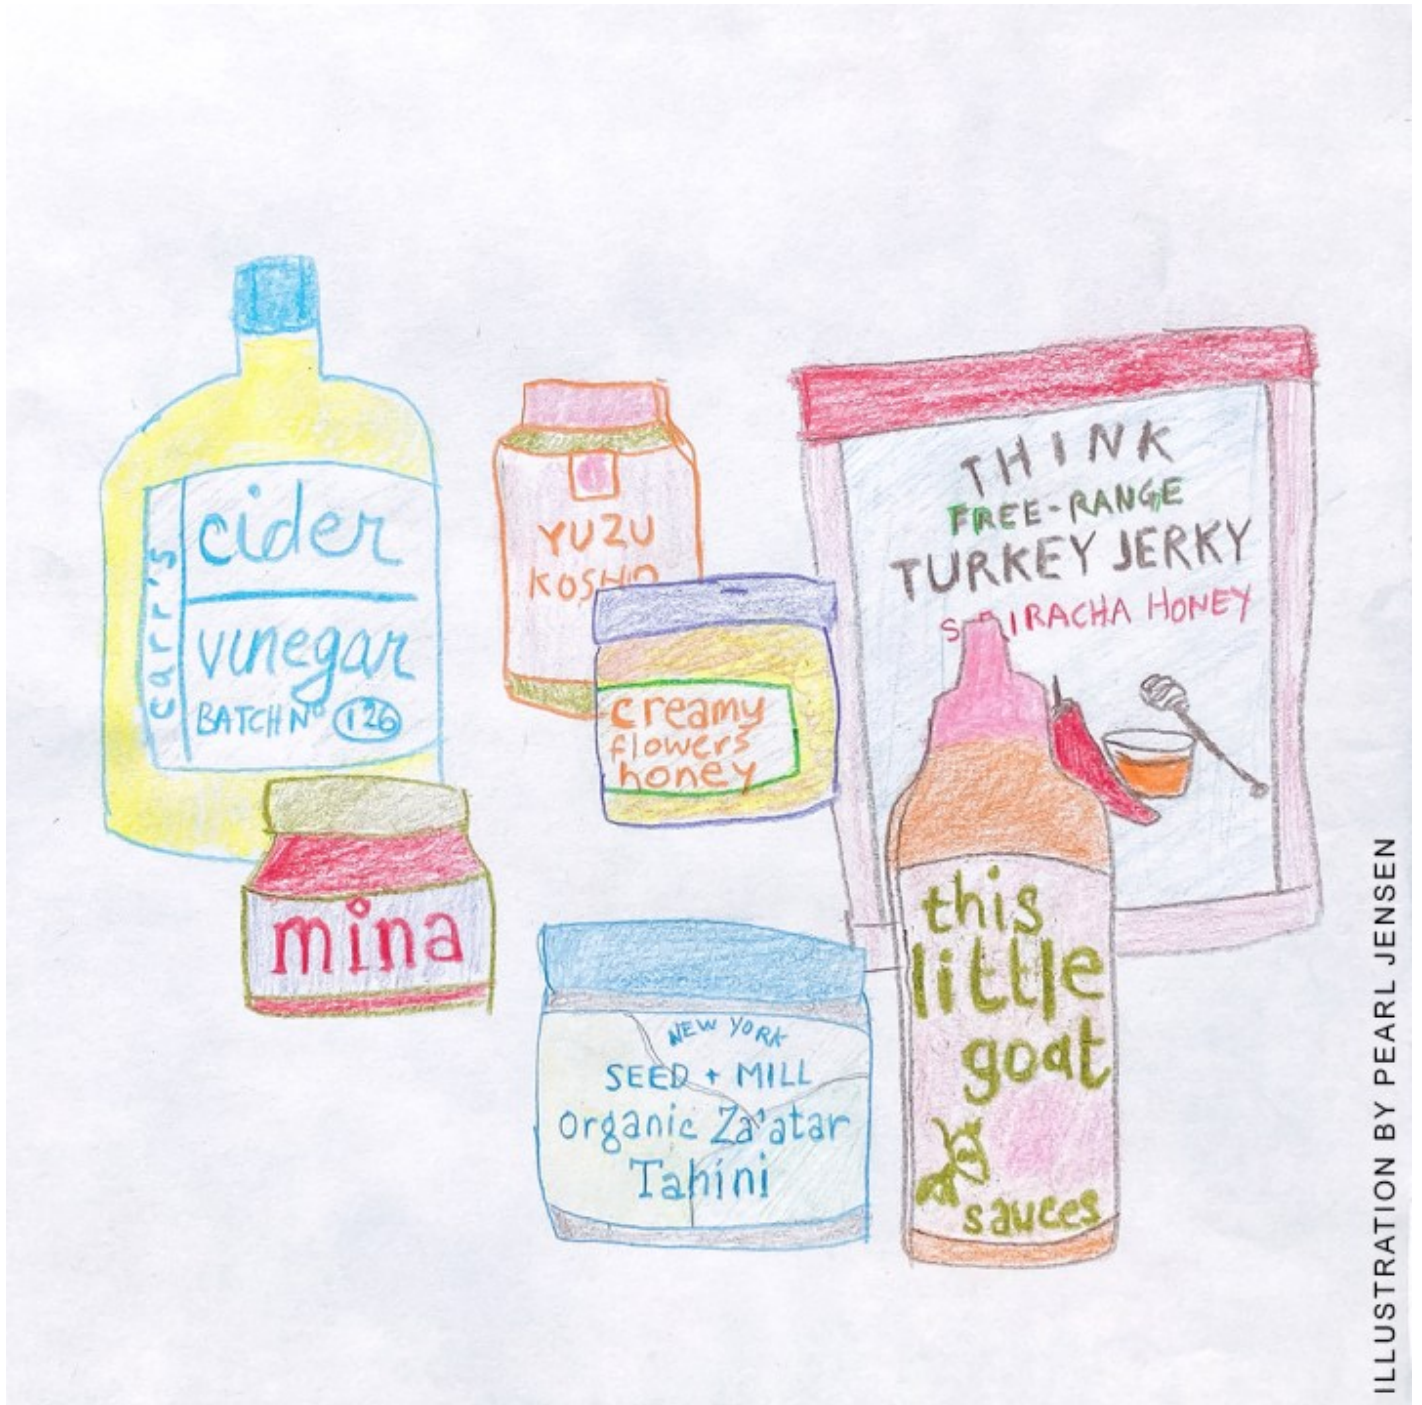 carr's
cider
vinegar
BATCH Nº 126
YUZU
KOSHO
creamy
flowers
honey
THINK
FREE-RANGE
TURKEY JERKY
SRIRACHA HONEY
mina
NEW YORK
SEED + MILL
organic Za'atar
Tahini
this
little
goat
sauces
ILLUSTRATION BY PEARL JENSEN